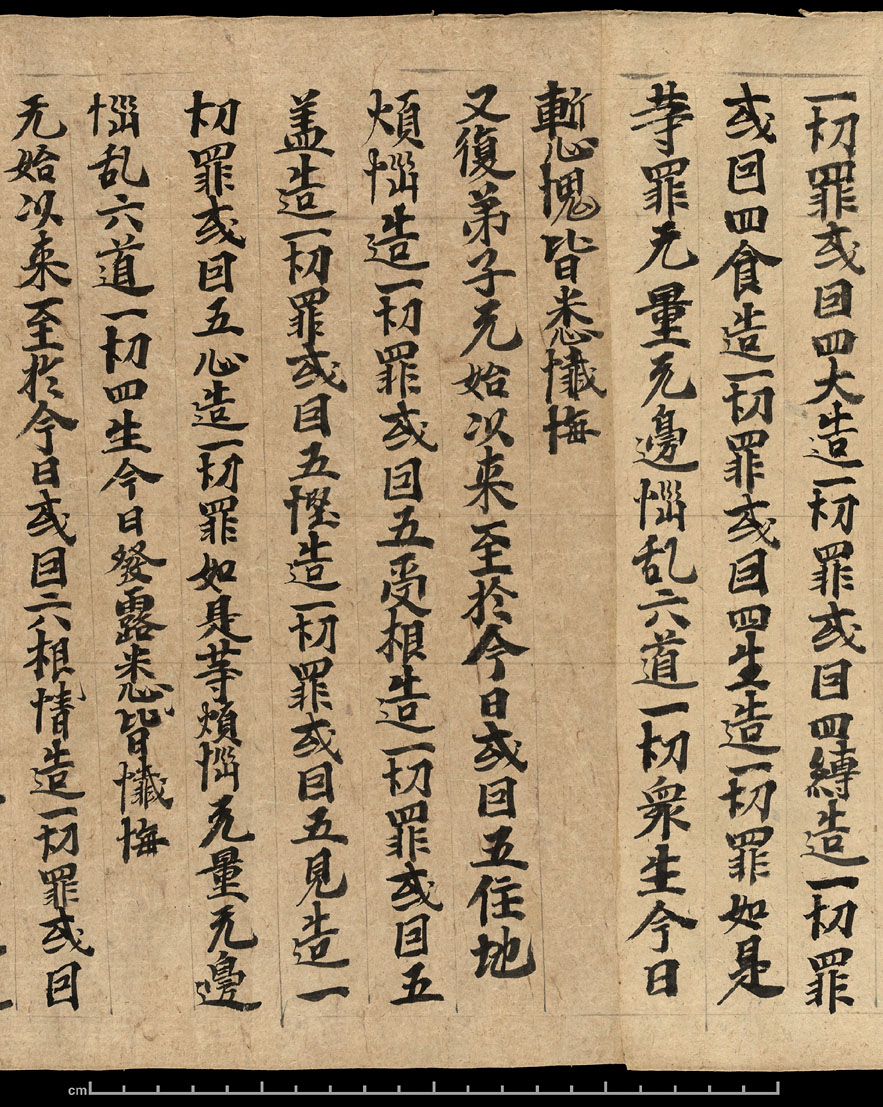 一切罪或囙四大造一切罪或囙四縛造一切罪
或囙四食造一切罪或囙四生造一切罪如是
莘罪无量无邊惱乱六道一切衆生今日
慙愧皆悉懺悔
又復弟子无始以来至於今日或囙五住地
煩惱造一切罪或囙五受根造一切罪或囙五
盖造一切罪或囙五慳造一切罪或囙五見造一
切罪或囙五心造一切罪如是莘煩惱无量无邊
惱乱六道一切四生今日發露悉皆懺悔
无始以来至於今日或囙六根情造一切罪或囙